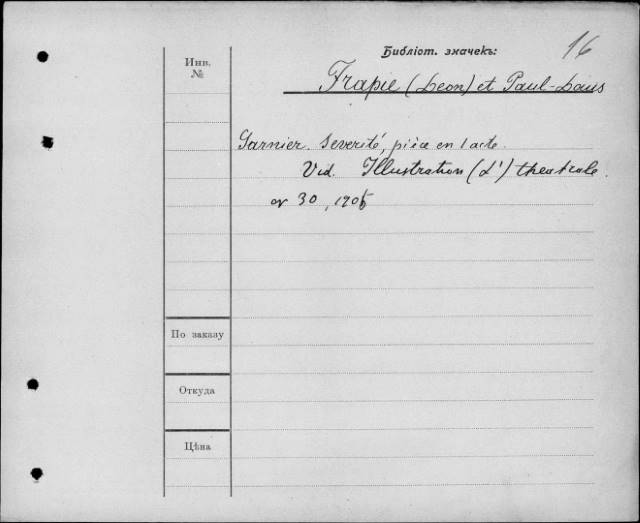 Библіот. значекъ:
16
Инв.
№
Frapie (Leon) et Paul-Louis
Garnier. Severité, pièce en 1 acte.
Vid. Illustration (L') theatrale.
№ 30, 1905
По заказу
Откуда
Цѣна